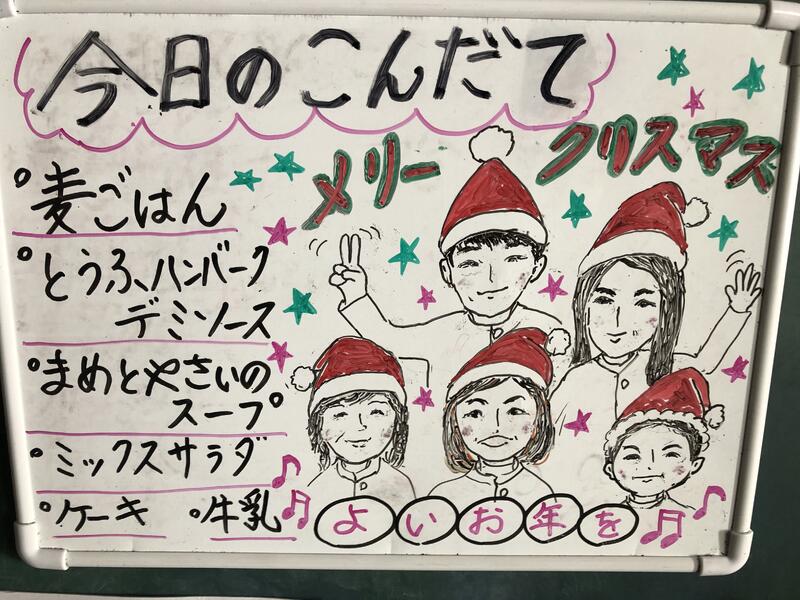 今日のこんだて
メリー クリスマス
麦ごはん
とうふハンバーク
デミソース
まめとやさいの
スープ
ミックスサラダ
ケーキ ・牛乳
よいお年を